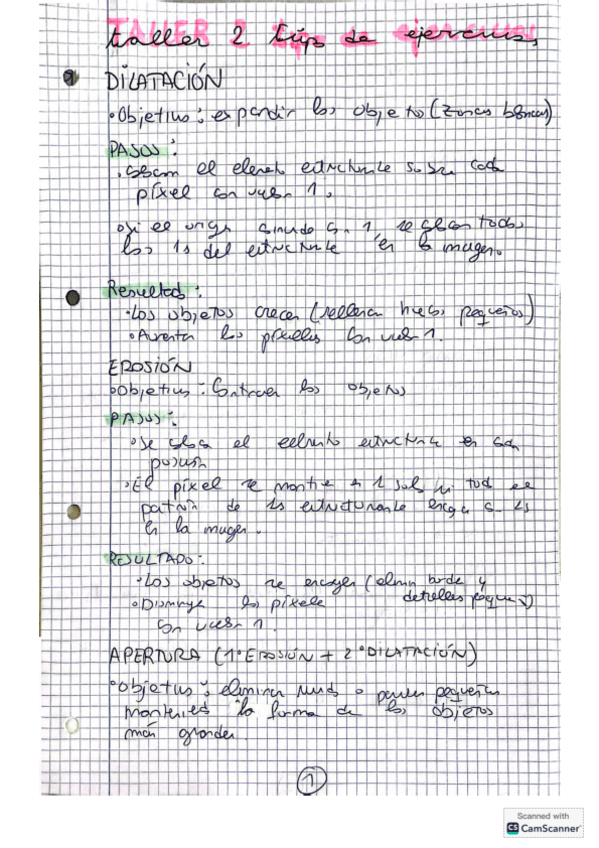 taller 2 tips de ejercicios
DILATACIÓN
• Objetivo: expandir los objeto (zonas blancas)
PASOS:
• el elemento estructurante sobre cada
píxel con valor 1.
• si el origen con 1, se colocan todos
los 1s del estructurante en la imagen.
Resultado:
• Los objetos crecen (rellenan huecos pequeños)
• Aumenta los píxeles con valor 1.
EROSIÓN
• Objetivo: Contraer los objetos
PASOS:
• Se coloca el elemento estructurante en cada
posición
• El píxel se mantiene en 1 solo si todo el
patrón de 1s estructurante encaja con 1s
en la imagen.
RESULTADO:
• Los objetos se encogen (elimin borde y
detalles pequeños)
• Disminuye los píxeles
con valor 1.
APERTURA (1º EROSIÓN + 2º DILATACIÓN)
• Objetivo: eliminar ruido o partes pequeñas
manteniendo la forma de los objetos
más grandes.
1
Scanned with
CS CamScanner